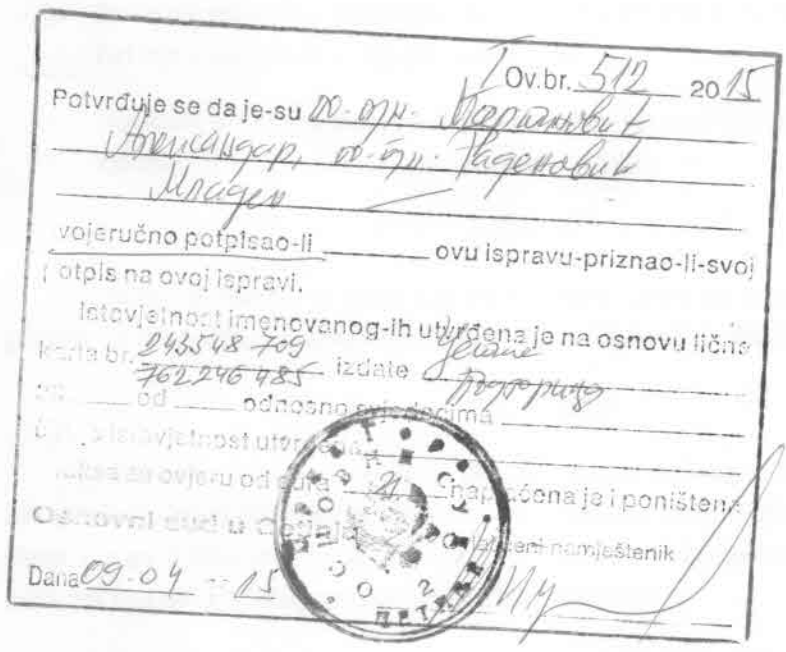 I Ov.br. 512 2015
Potvrđuje se da je-su Мартиновић
Александар, Раденовић
Младен
vojeručno potpisao-li ovu ispravu-priznao-li-svoj
potpis na ovoj ispravi.
Istovjetnost imenovanog-ih utvrđena je na osnovu lične
karte br. 243548709 izdate Цетиње
762246485 Подгорица
od odnosno svjedocima
istovjetnost utvrđena
taksa za ovjeru od eura 21 naplaćena je i poništena
Osnovni sud u Cetinju
namještenik
Dana 09.04 15